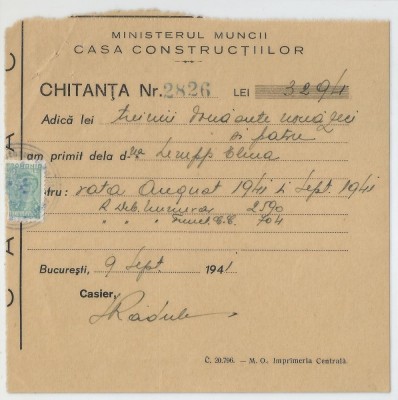 MINISTERUL MUNCII
CASA CONSTRUCȚIILOR
CHITANȚA Nr. 2826 LEI 3294
Adică lei treimii douăsute nouăzeci
și patru
am primit dela d-na Lempp Elena
tru: rata August 1941 și Sept. 1941
R. Deb. Numerar 2590
" " " 704
București, 9 Sept. 1941
Casier,
C. 20.796. — M. O., Imprimeria Centrală.
C
A
C